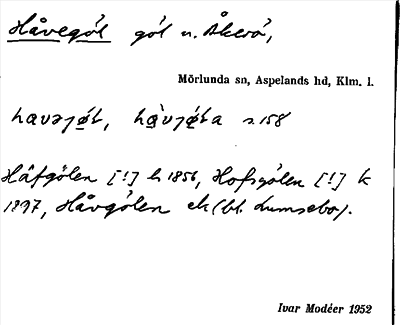 Håvegöl göl n. Åkerö,
Mörlunda sn, Aspelands hd, Klm. l.
havəɟøt, hàvɟøta s. 158
Håfgölen [!] h 1856, Hofsgölen [!] k
1897, Håvgölen ek (bl. Lumsebo).
Ivar Modéer 1952